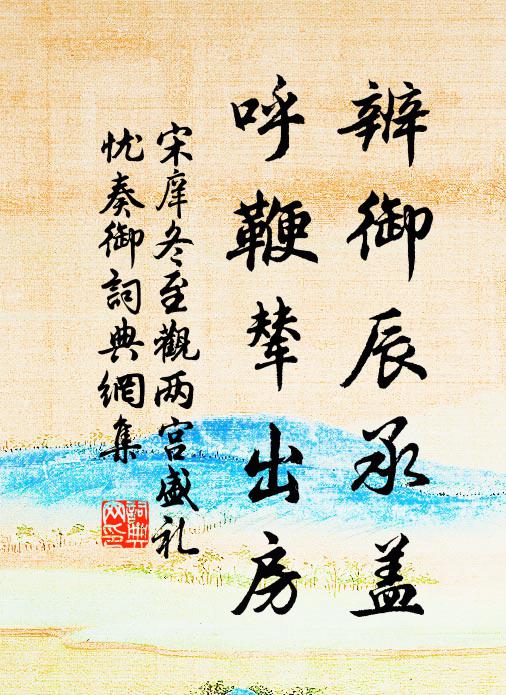 辨御辰承盖
呼鞭辇出房
宋庠冬至觀两宫盛礼
忧奏御詞典網集
詞典网印